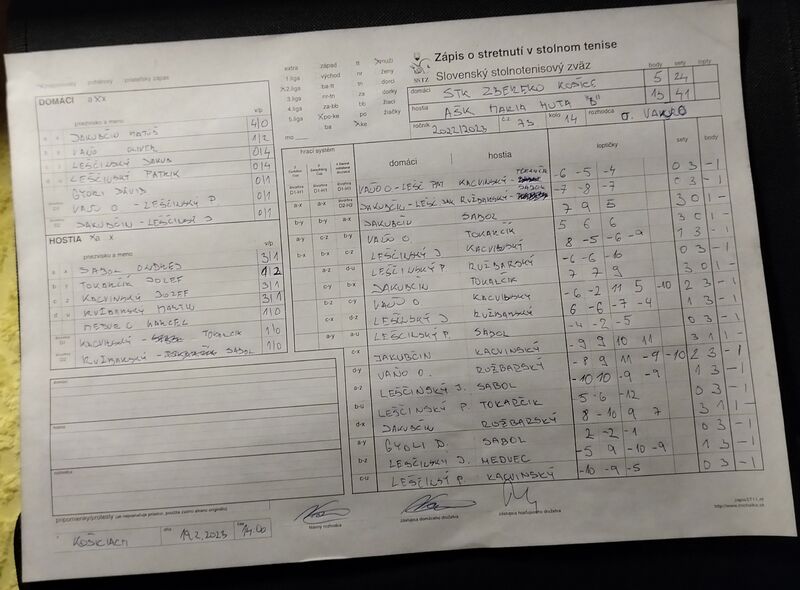 majstrovský pohárový priateľský zápas
extra západ tt muži
1.liga východ nr ženy
2.liga ba-tt tn dorci
3.liga nr-tn za dorky
4.liga za-bb bb žiaci
5.liga po-ke po žiačky
ba ke
mo
SSTZ
Zápis o stretnutí v stolnom tenise
Slovenský stolnotenisový zväz
body sety lopty
domáci STK ZBEREKO KOŠICE 5 24
hostia AŠK MARIA HUTA "B" 13 41
ročník 2022/2023 č.z 73 kolo 14 rozhodca O. VAŇO
DOMÁCI a x
priezvisko a meno v/p
JAKUBČIN MATÚŠ 4/0
VAŇO OLIVER 1/2
LEŠČINSKÝ JAKUB 0/4
LEŠČINSKÝ PATRIK 0/4
GYÖRI DÁVID 0/1
VAŇO O - LEŠČINSKÝ P 0/1
JAKUBČIN - LEŠČINSKÝ J 0/1
HOSTIA a x
priezvisko a meno v/p
SABOL ONDREJ 3/1
TOKARČÍK JOZEF 1/2
KACVINSKÝ JOZEF 3/1
RUŽBARSKÝ MARTIN 3/1
MEDVEC MARCEL 1/0
KACVINSKÝ - TOKARČÍK 1/0
RUŽBARSKÝ - SABOL 1/0
domáci
hostia
rozhodca
pripomienky/protesty (ak nepostačuje priestor, použite zadnú stranu originálu)
v KOŠICIACH dňa 19.2.2023 čas 14.00
hrací systém domáci hostia loptičky sety body
VAŇO O - LEŠČ PAT KACVINSKÝ - TOKARČÍK -6 -5 -4 0 3 -1
JAKUBČIN - LEŠČ JAK RUŽBARSKÝ - SABOL -7 -8 -7 0 3 -1
a-x JAKUBČIN SABOL 7 9 5 3 0 1 -
b-y VAŇO O. TOKARČÍK 5 6 6 3 0 1 -
c-z LEŠČINSKÝ J. KACVINSKÝ 8 -5 -6 -9 1 3 -1
d-u LEŠČINSKÝ P. RUŽBARSKÝ -6 -6 -6 0 3 -1
JAKUBČIN TOKARČÍK 7 7 9 3 0 1 -
VAŇO O. KACVINSKÝ -6 -2 11 5 -10 2 3 -1
LEŠČINSKÝ J RUŽBARSKÝ 6 -6 -7 -4 1 3 -1
a-u LEŠČINSKÝ P. SABOL -4 -2 -5 0 3 -1
c-x JAKUBČIN KACVINSKÝ -9 9 10 11 3 1 1 -
VAŇO O. RUŽBARSKÝ -8 9 11 -9 -10 2 3 -1
LEŠČINSKÝ J. SABOL -10 10 -9 -9 1 3 -1
b-u LEŠČINSKÝ P. TOKARČÍK -5 -6 -12 0 3 -1
d-x JAKUBČIN RUŽBARSKÝ 8 -10 9 7 3 1 1 -
a-y GYÖRI D. SABOL -2 -2 -1 0 3 -1
b-z LEŠČINSKÝ J. MEDVEC -5 9 -10 -9 1 3 -1
c-u LEŠČINSKÝ P. KACVINSKÝ -10 -9 -5 0 3 -1
hlavný rozhodca
zástupca domáceho družstva
zástupca hosťujúceho družstva